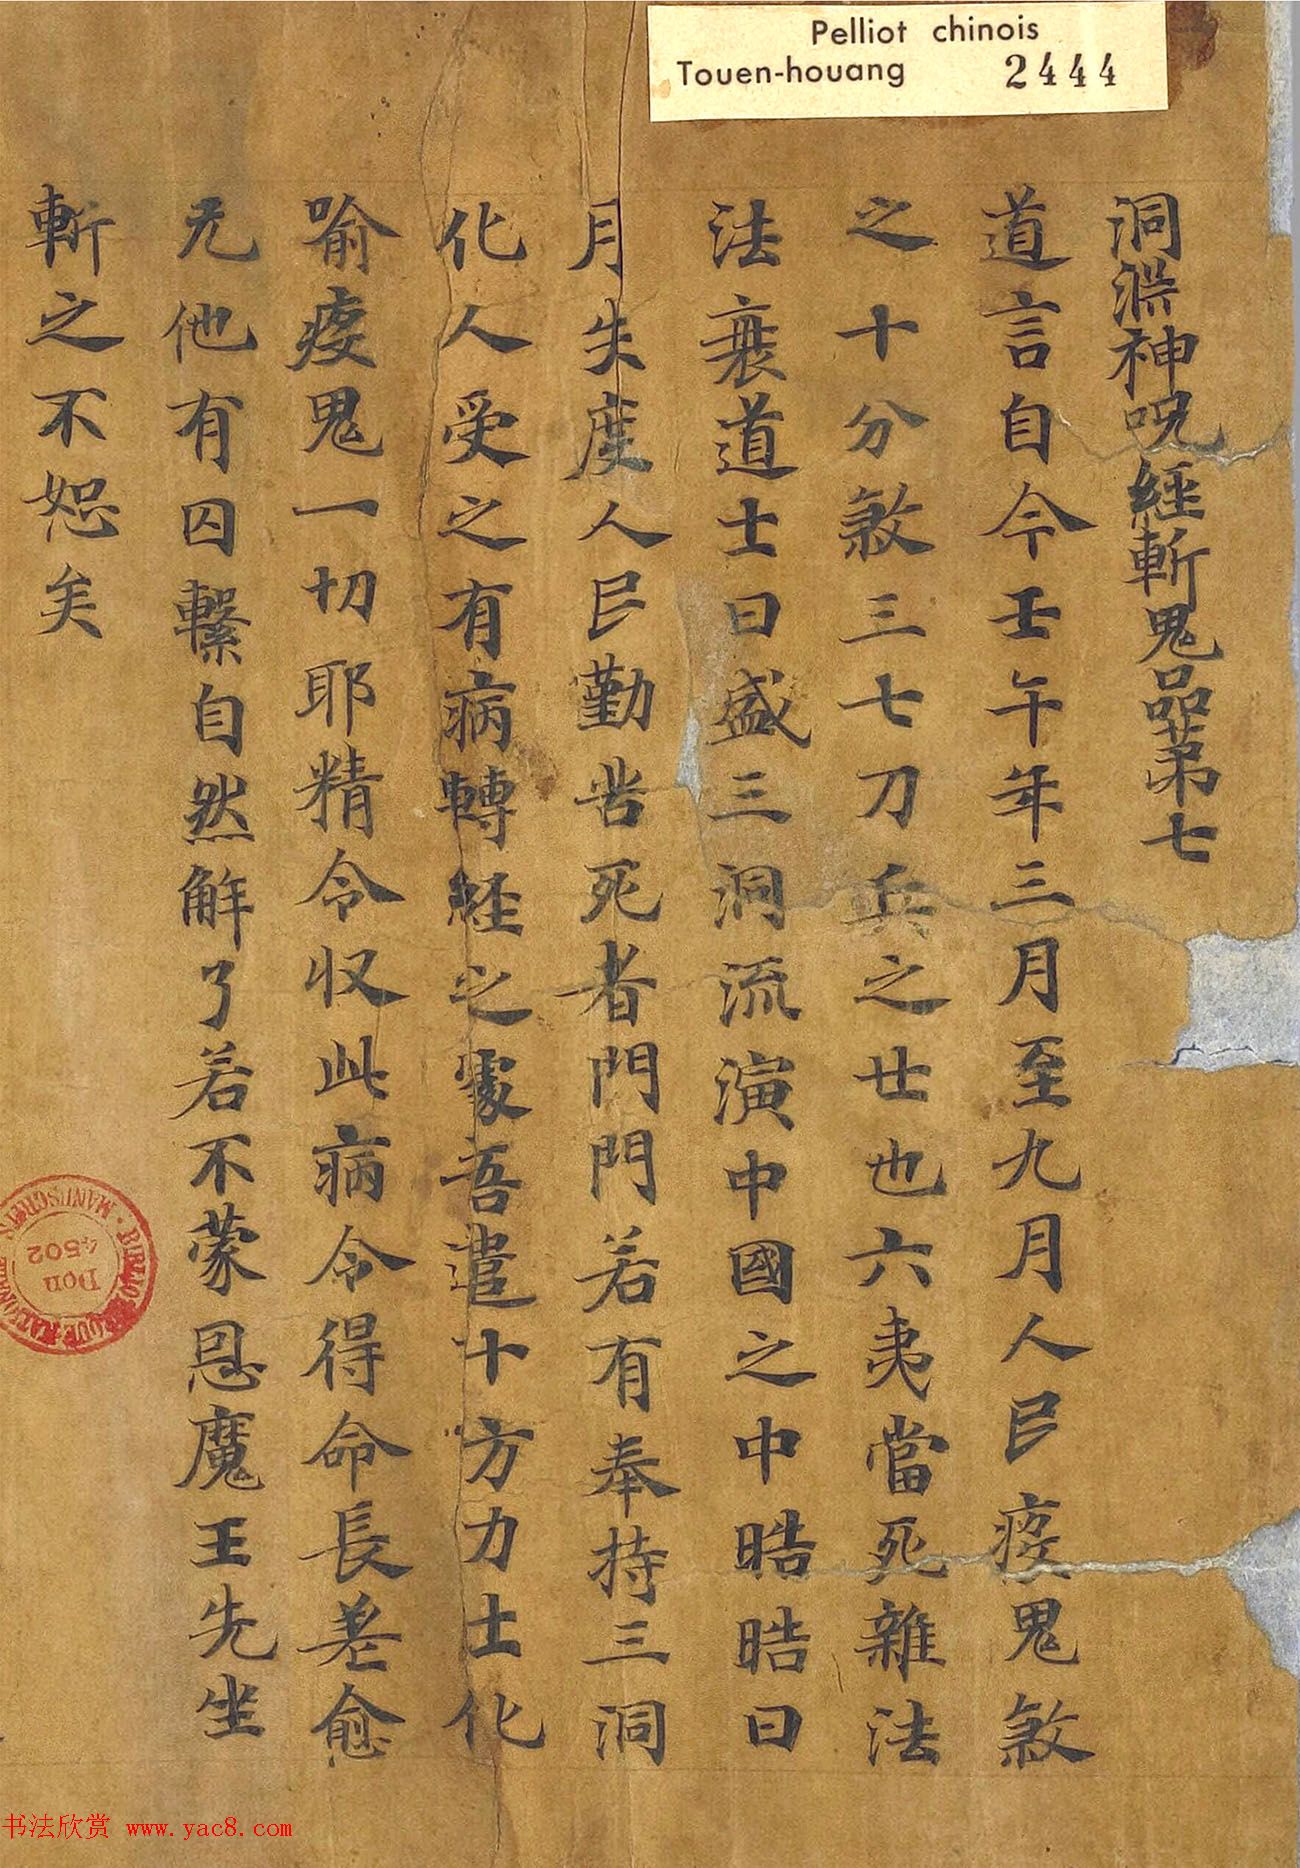 Pelliot chinois
Touen-houang 2444
洞渊神呪經斬鬼品第七
道言自今壬午年三月至九月人民疫鬼煞
之十分煞三七刀兵之廿也六夷當死雜法
法衰道士日盛三洞流演中國之中晧晧日
月失度人民勤苦死者門門若有奉持三洞
化人受之有病轉経之處吾遣十方力士化
喻疫鬼一切耶精令収此病令得命長差愈
无他有囚繫自然解了若不蒙恩魔王先坐
斬之不恕矣
BIBLIOTHÈQUE NATIONALE MANUSCRITS
Don
4502
书法欣赏 www.yac8.com